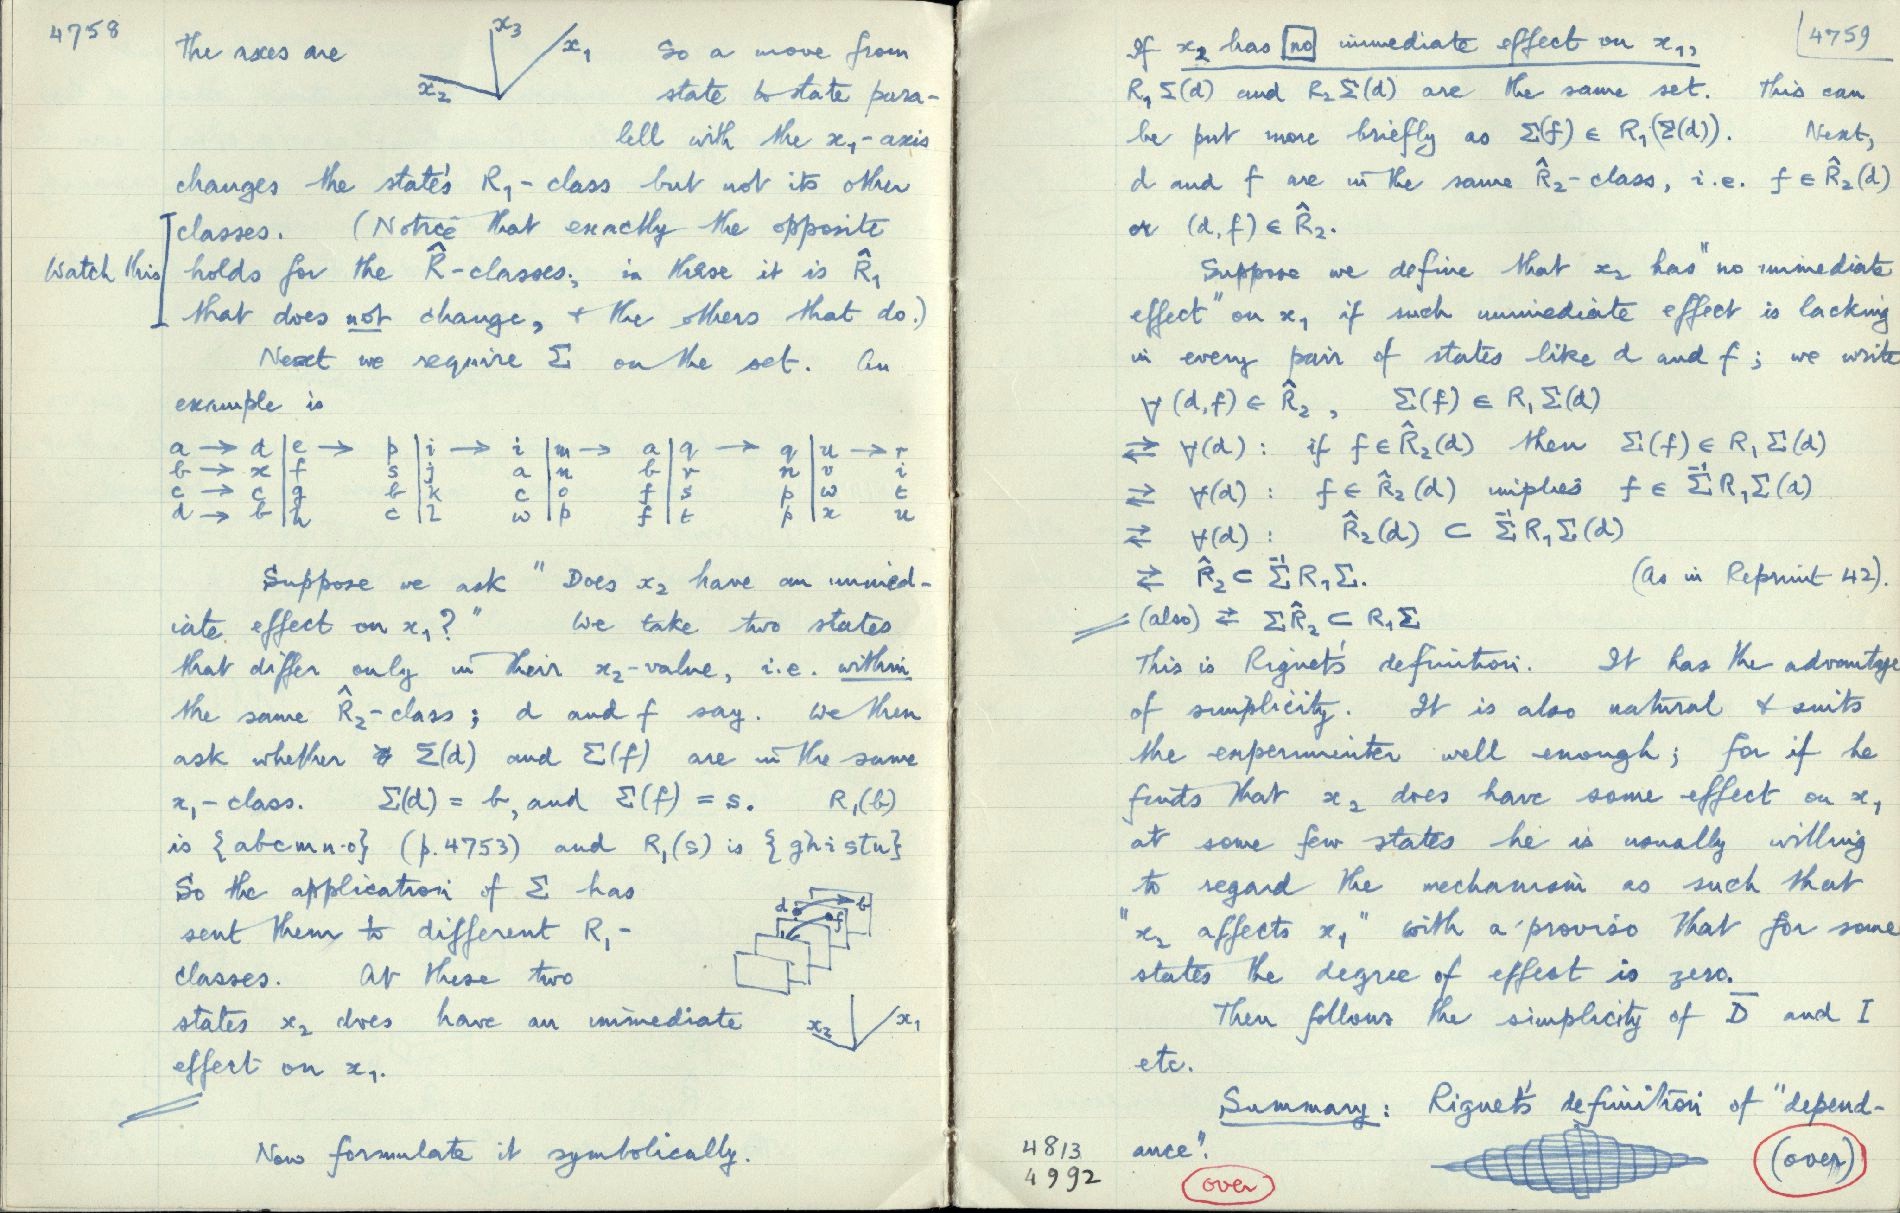 4758
The axes are
x3
x1
x2
So a move from
state to state para-
lell with the x1-axis
changes the state's R1-class but not its other
classes. (Notice that exactly the opposite
Watch this
holds for the R̂-classes; in these it is R̂1
that does not change, & the others that do.)
Next we require Σ on the set. An
example is
a → d | e → p | i → i | m → a | q → q | u → r
b → x | f s | j a | n b | r n | v i
c → c | g b | k c | o f | s p | w t
d → b | h c | l w | p f | t p | x u
Suppose we ask "Does x2 have an immed-
iate effect on x1?" We take two states
that differ only in their x2-value, i.e. within
the same R̂2-class; d and f say. We then
ask whether Σ(d) and Σ(f) are in the same
x1-class. Σ(d) = b, and Σ(f) = s. R1(b)
is {abcmno} (p.4753) and R1(s) is {ghistu}
So the application of Σ has
sent them to different R1-
classes. At these two
states x2 does have an immediate
effect on x1.
d b
f
x2 x1
Now formulate it symbolically.
4759
If x2 has no immediate effect on x1,
R1Σ(d) and R2Σ(d) are the same set. This can
be put more briefly as Σ(f) ∈ R1(Σ(d)). Next,
d and f are in the same R̂2-class, i.e. f ∈ R̂2(d)
or (d,f) ∈ R̂2.
Suppose we define that x2 has "no immediate
effect" on x1 if such immediate effect is lacking
in every pair of states like d and f; we write
∀(d,f) ∈ R̂2, Σ(f) ∈ R1Σ(d)
⇄ ∀(d): if f ∈ R̂2(d) then Σ(f) ∈ R1Σ(d)
⇄ ∀(d): f ∈ R̂2(d) implies f ∈ Σ⁻¹R1Σ(d)
⇄ ∀(d): R̂2(d) ⊂ Σ⁻¹R1Σ(d)
⇄ R̂2 ⊂ Σ⁻¹R1Σ. (As in Reprint 42).
(also) ⇄ ΣR̂2 ⊂ R1Σ
This is Riguet's definition. It has the advantage
of simplicity. It is also natural & suits
the experimenter well enough; for if he
finds that x2 does have some effect on x1
at some few states he is usually willing
to regard the mechanism as such that
"x2 affects x1" with a proviso that for some
states the degree of effect is zero.
Then follows the simplicity of D̅ and I
etc.
Summary: Riguet's definition of "depend-
ance".
4813
4992
(over)
(over)